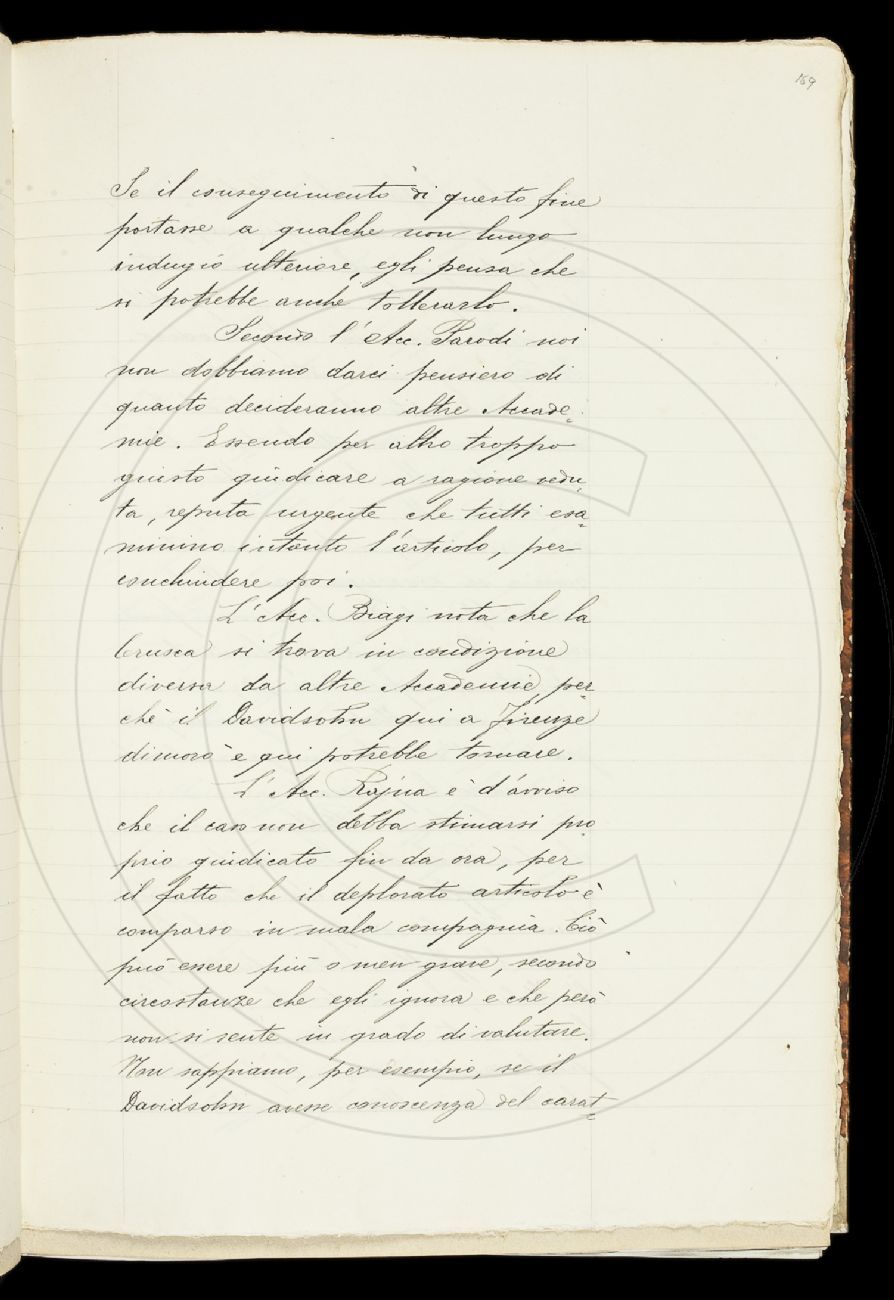 169
Se il conseguimento di questo fine
portasse a qualche non lungo
indugio ulteriore, egli pensa che
si potrebbe anche tollerarlo.
Secondo l'Acc. Parodi noi
non dobbiamo darci pensiero di
quanto decideranno altre Accade-
mie. Essendo per altro troppo
giusto giudicare a ragione vedu-
ta, reputa urgente che tutti esa-
minino intanto l'articolo, per
conchiudere poi.
L'Acc. Biagi nota che la
Crusca si trova in condizione
diversa da altre Accademie, per-
chè il Davidsohn qui a Firenze
dimorò e qui potrebbe tornare.
L'Acc. Rajna è d'avviso
che il caso non debba stimarsi pro
prio giudicato fin da ora, per
il fatto che il deplorato articolo è
comparso in mala compagnia. Ciò
può essere più o men grave, secondo
circostanze che egli ignora e che però
non si sente in grado di valutare.
Non sappiamo, per esempio, se il
Davidsohn avesse conoscenza del carat-